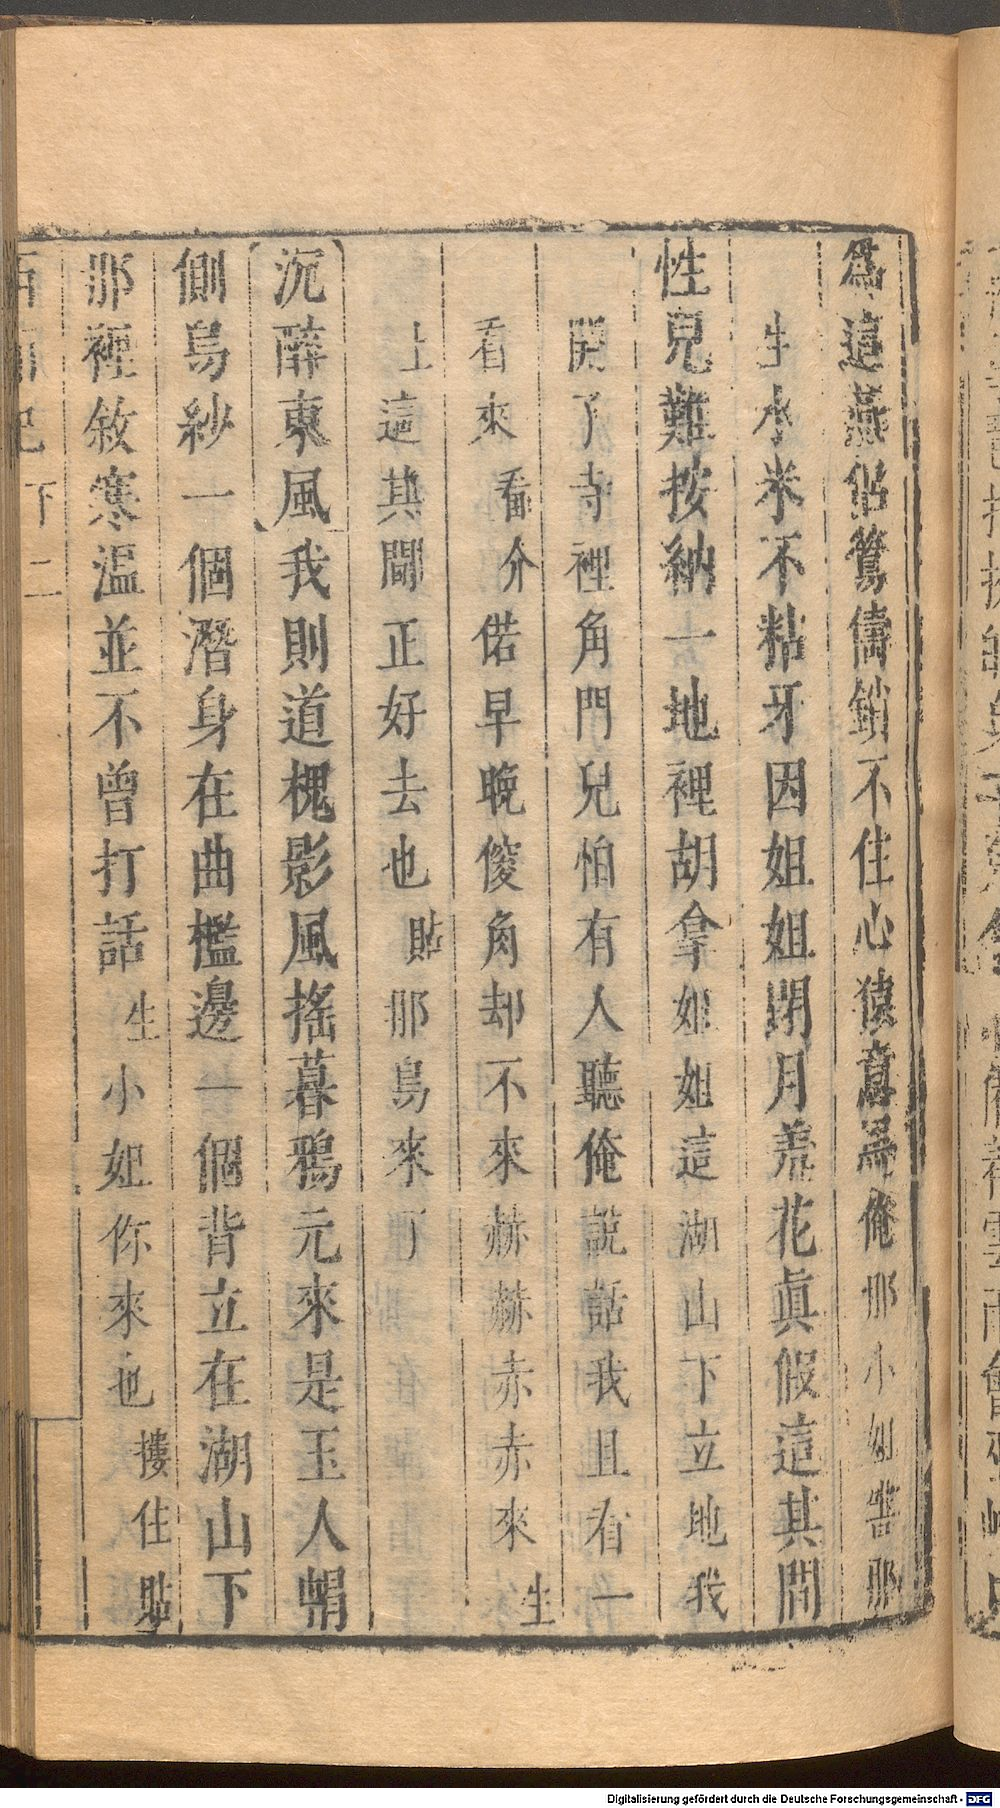 為這燕侶鶯儔鎖不住心猿意馬俺那小姐害那
生水米不粘牙因姐姐閉月羞花真假這其間
性兒難按納一地裡胡拿姐姐這湖山下立地我
開了寺裡角門兒怕有人聽俺說話我且看一
看來看介偌早晚傻角却不來赫赫赤赤來生
上這其間正好去也貼那鳥來了
沉醉東風我則道槐影風搖暮鴉元來是玉人帽
側烏紗一個潛身在曲檻邊一個背立在湖山下
那裡敘寒溫並不曾打話生小姐你來也摟住貼
下二
Digitalisierung gefördert durch die Deutsche Forschungsgemeinschaft - DFG